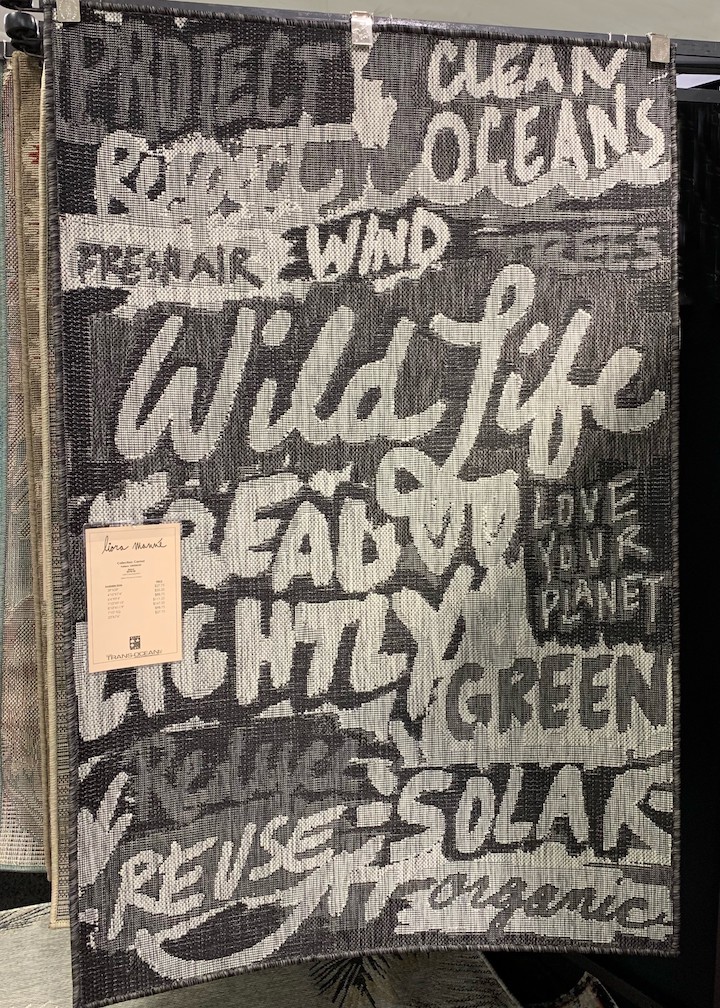 PROTECT
CLEAN
OCEANS
FRESH AIR
WIND
TREES
Wild Life
TREAD
LOVE
YOUR
PLANET
LIGHTLY
GREEN
Reduce
SOLAR
REUSE
organic
liora manné
TRANS-OCEAN